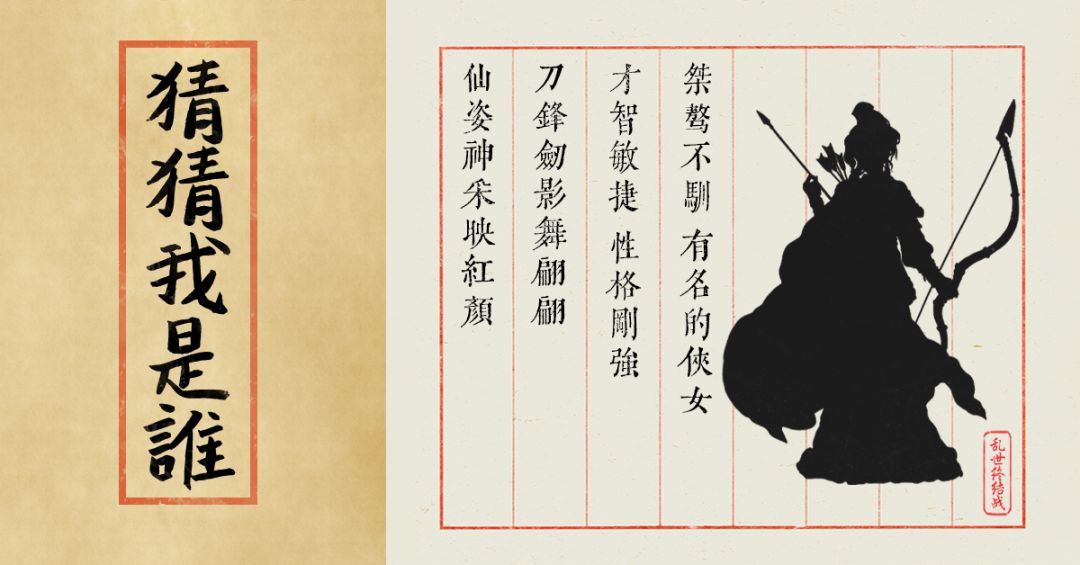 猜猜我是誰
桀驁不馴 有名的俠女
才智敏捷 性格剛強
刀鋒劒影舞翩翩
仙姿神采映紅顏
乱世终结战